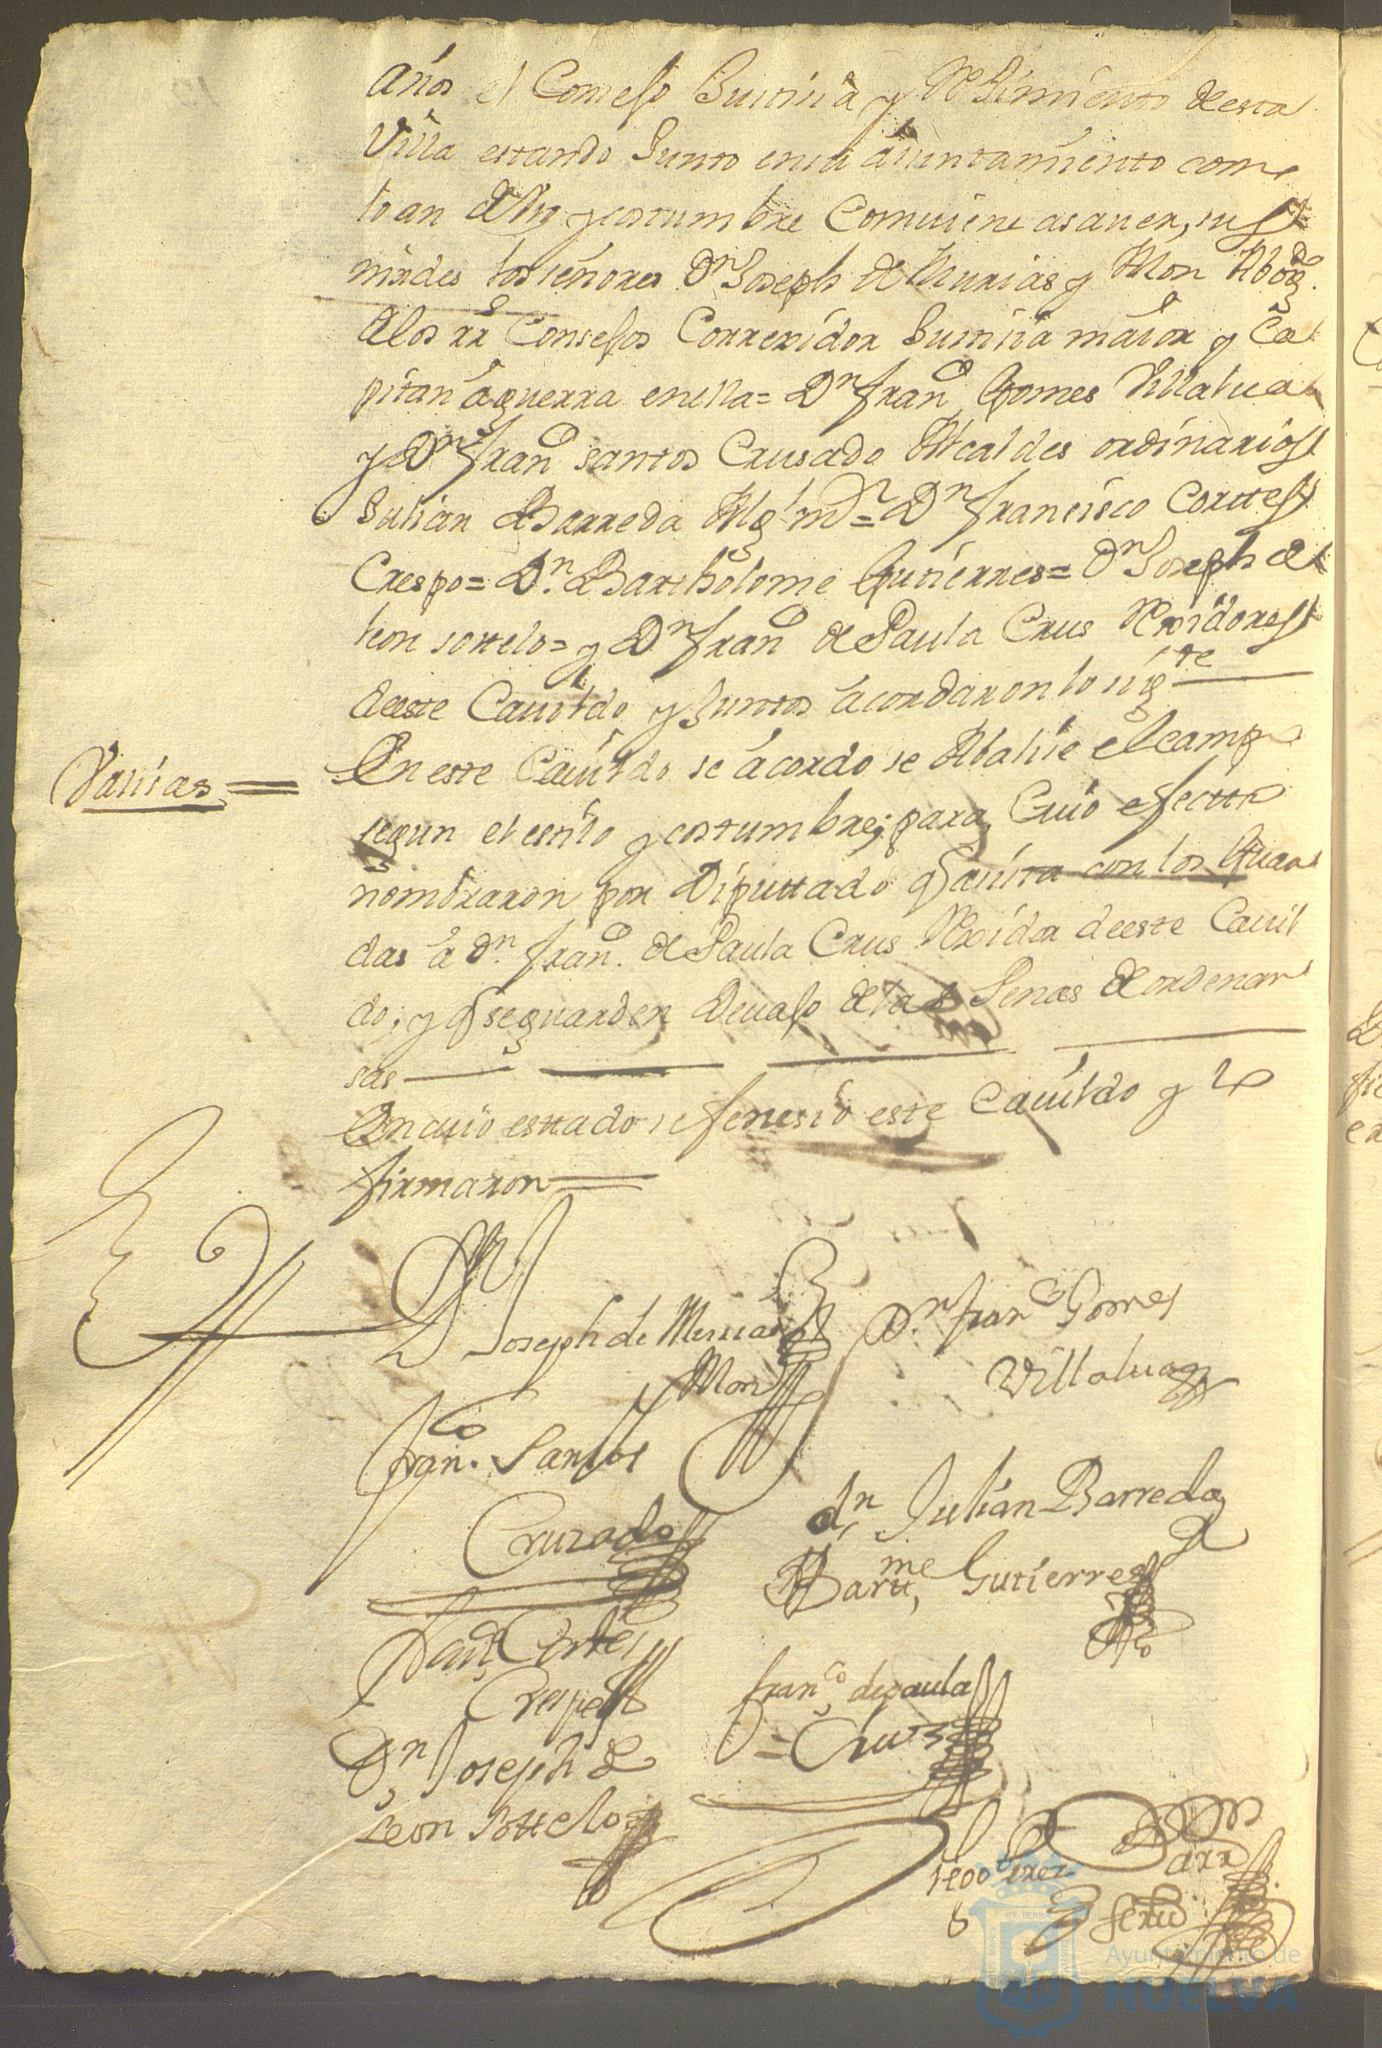 años el Consejo Justicia y Reximiento desta
Villa estando Junto en su aiuntamiento como
lo an de uso y costumbre Comuiene asauer, su st
mrdes los señores Dn Joseph de Murias y Mon Abogdo
de los RR Consejos Correxidor Justicia maior y Ca
pitan a guerra en ella = Dn Franco Gomes Villalua
y Dn Franco santos Crusado Alcaldes ordinarios
Julian Barreda Algl mr = Dn Francisco Corttes
Crespo = Dn Bartholome Gutierres = Dn Joseph de
leon sottelo = y Dn Franco de Paula Crus Rexidores
deeste Cauildo y Juntos acordaron lo sigte
Vanias = En este Cauildo se acordo se Abalie el campo
segun el estilo y costumbre; para Cuio efectto
nombraron por Diputtado q salira con los Guar
das a Dn Franco de Paula Crus Rexidor deeste Cauil
do; y q se guarden Deuajo de las Penas de ordenan
sas
En cuio esttado se fenesio este Cauildo y lo
firmaron
Dn Joseph de Murias
y Mon
Dn Franco Gomes
Villalua
Franco Santos
Cruzado
dn Julian Barreda
Barttme Gutierres
Franco Cortes
Crespo
franco de paula
= Cruz
Dn Joseph de
Leon Sottelo
Ayuntamiento de
HUELVA